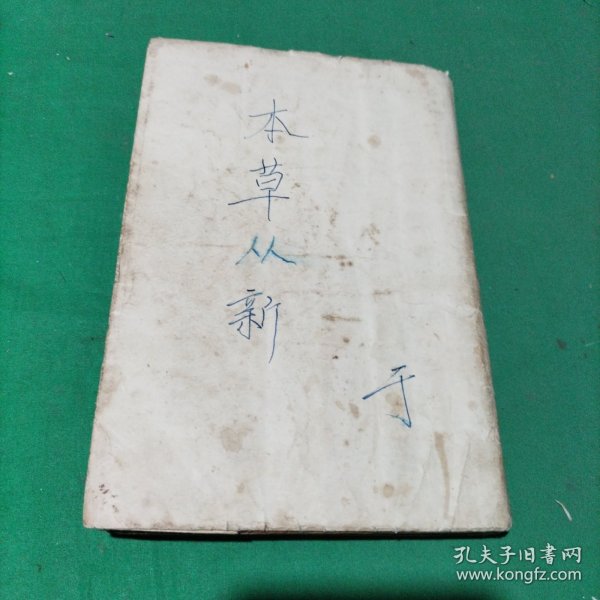 本草从新
于
孔夫子旧書网
www.kongfz.com